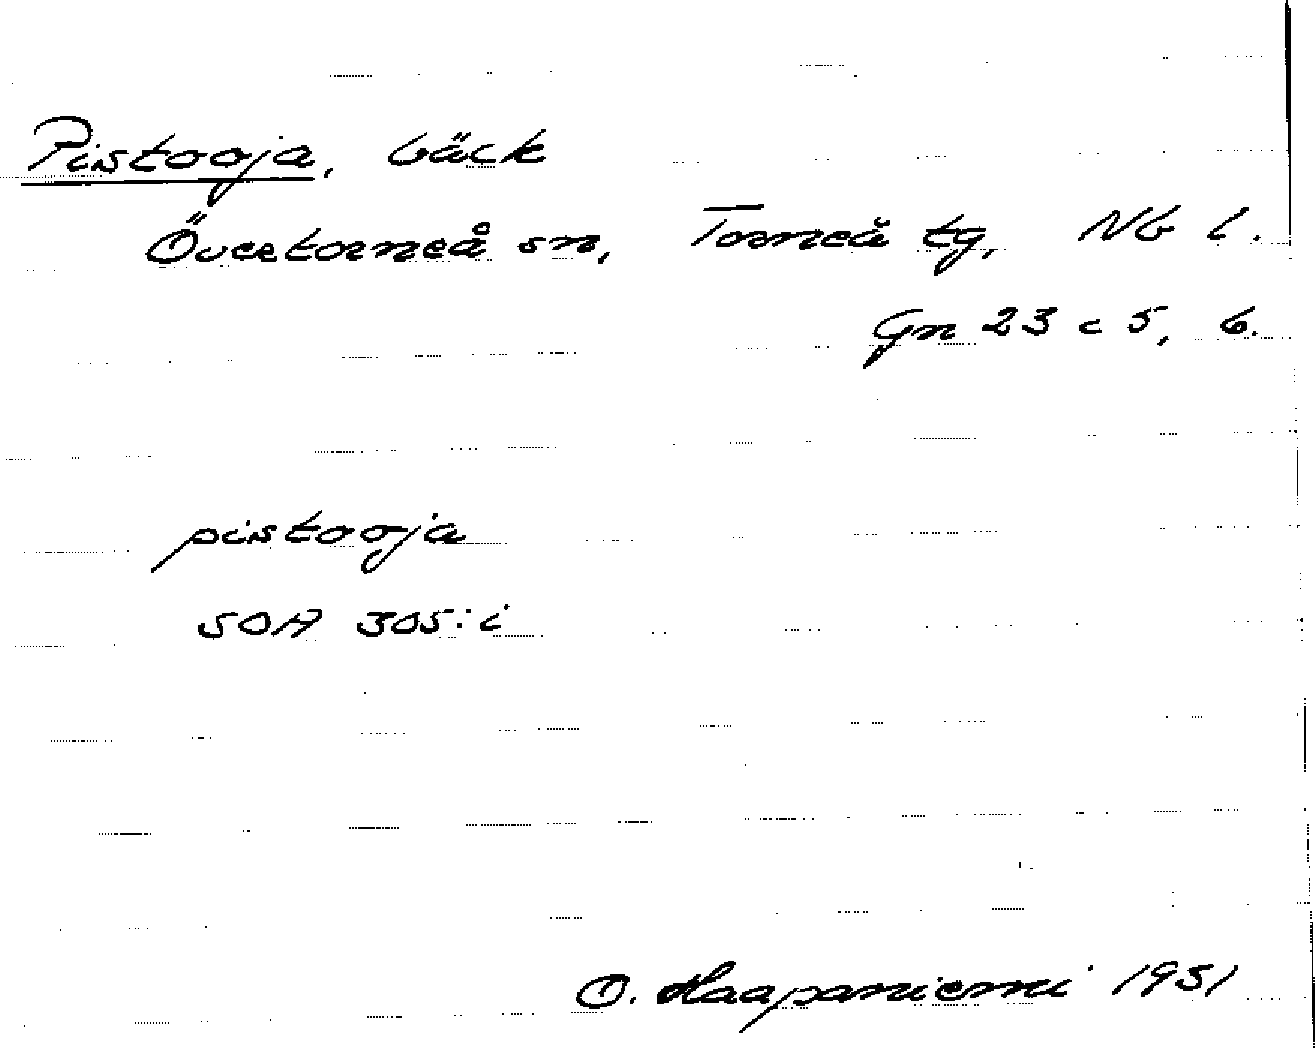 Pistooja, bäck
Övertorneå sn, Torneå tg, Nb l.
Gn 23 c 5, 6.
pistooja
SOA 305:i
O. Haapaniemi 1951